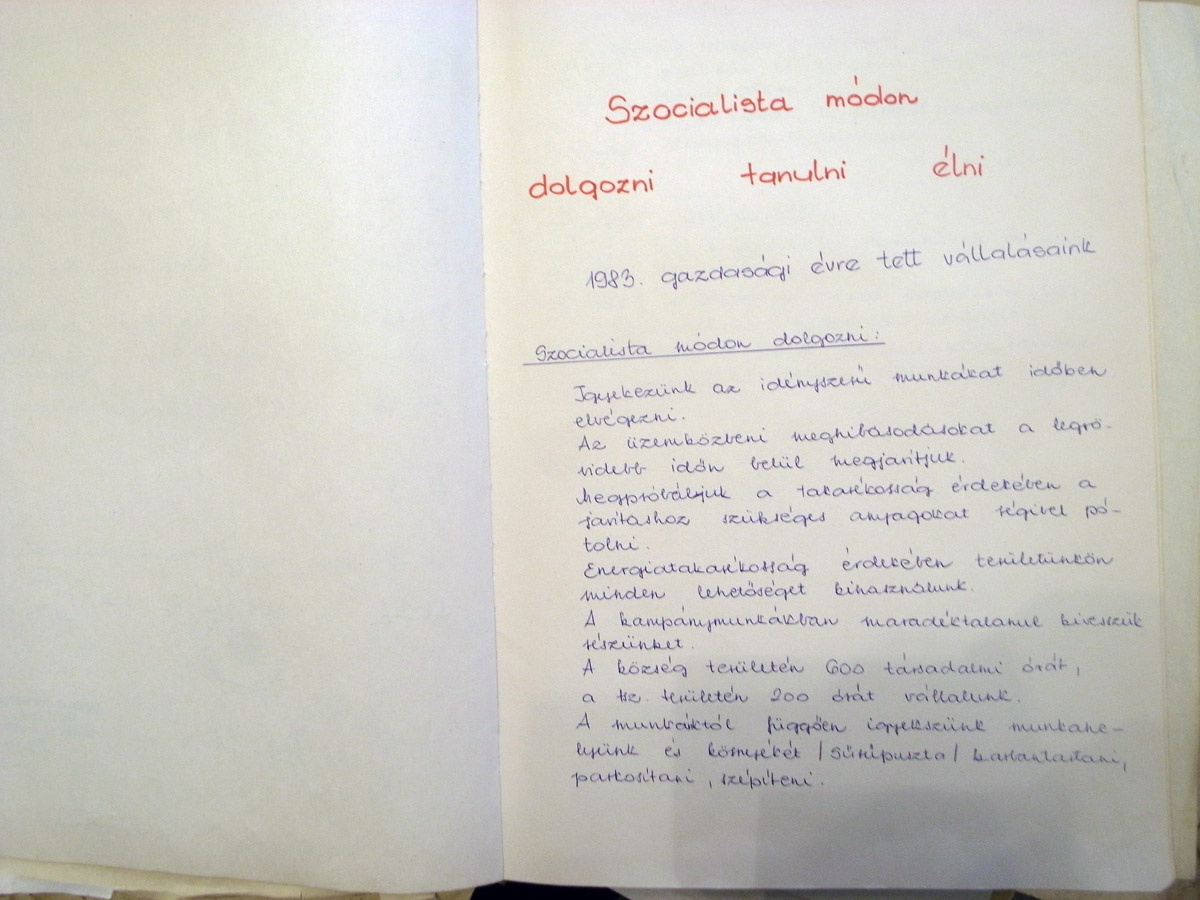 Szocialista módon
dolgozni tanulni élni
1983. gazdasági évre tett vállalásaink
Szocialista módon dolgozni:
Igyekezünk az idényszerű munkákat időben
elvégezni.
Az üzemközbeni meghibásodásokat a legrö-
videbb időn belül megjavítjuk.
Megpróbáljuk a takarékosság érdekében a
javításhoz szükséges anyagokat régivel pó-
tolni.
Energiatakarékosság érdekében területünkön
minden lehetőséget kihasználunk.
A kampánymunkákban maradéktalanul kivesszük
részünket.
A község területén 600 társadalmi órát,
a tsz. területén 200 órát vállalunk.
A munkáktól függően igyekszünk munkahe-
lyünk és környékét /Sűripuszta/ karbantartani,
parkosítani, szépíteni.